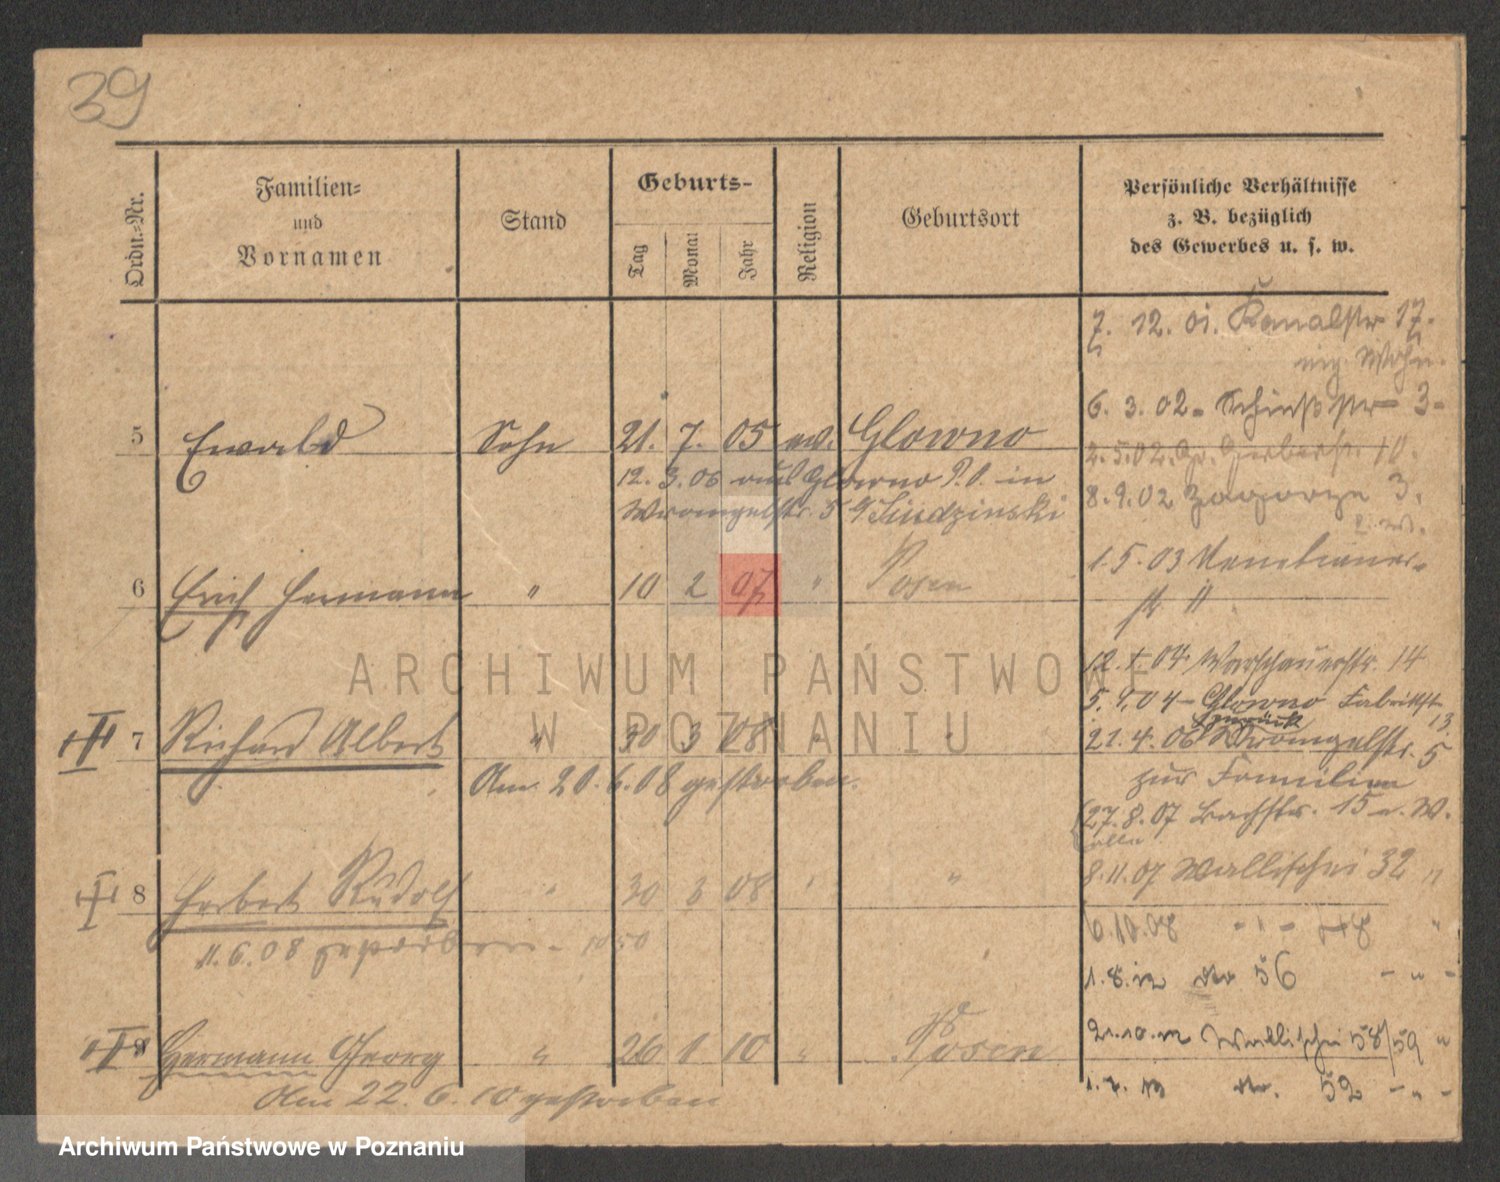 39
Ordn.-Nr.
Familien-
und
Vornamen
Stand
Geburts-
Tag
Monat
Jahr
Religion
Geburtsort
Persönliche Verhältnisse
z. B. bezüglich
des Gewerbes u. s. w.
7. 12. 01. Kanalstr 17.
eig. Wohn.
6. 3. 02 - Schießstr 3-
5 Ewald Sohn 21. 7. 05 ev. Glowno
2. 5. 02. Gr. Gerberstr. 10.
12. 3. 06 aus Glowno P. O. in
8. 9. 02 Zagorze 3.
Wrangelstr. 5
1. 5. 03 Venetianer-
str 11
6 Erich Hermann " 10 2 07 " Posen
12. 04 Warschauerstr. 14
5. 9. 04 - Glowno Fabrikstr
13.
7 Richard Albert " 30 3 08 "
21. 4. 06 Wrangelstr. 5
Am 20. 6. 08 gestorben.
zur Familien
27. 8. 07 Bachstr. 15 e. W.
8 Herbert Rudolf " 30 3 08 " "
8. 11. 07 Wallischei 32 "
11. 6. 08 gestorben -
6. 10. 08 - " -
1. 8. 12 do 56 - " -
9 Hermann Georg " 26 1 10 " Posen
21. 10. 12 Wallischei 58/59 "
Am 22. 6. 10 gestorben
do. 52 - " -
ARCHIWUM PAŃSTWOWE
W POZNANIU
Archiwum Państwowe w Poznaniu